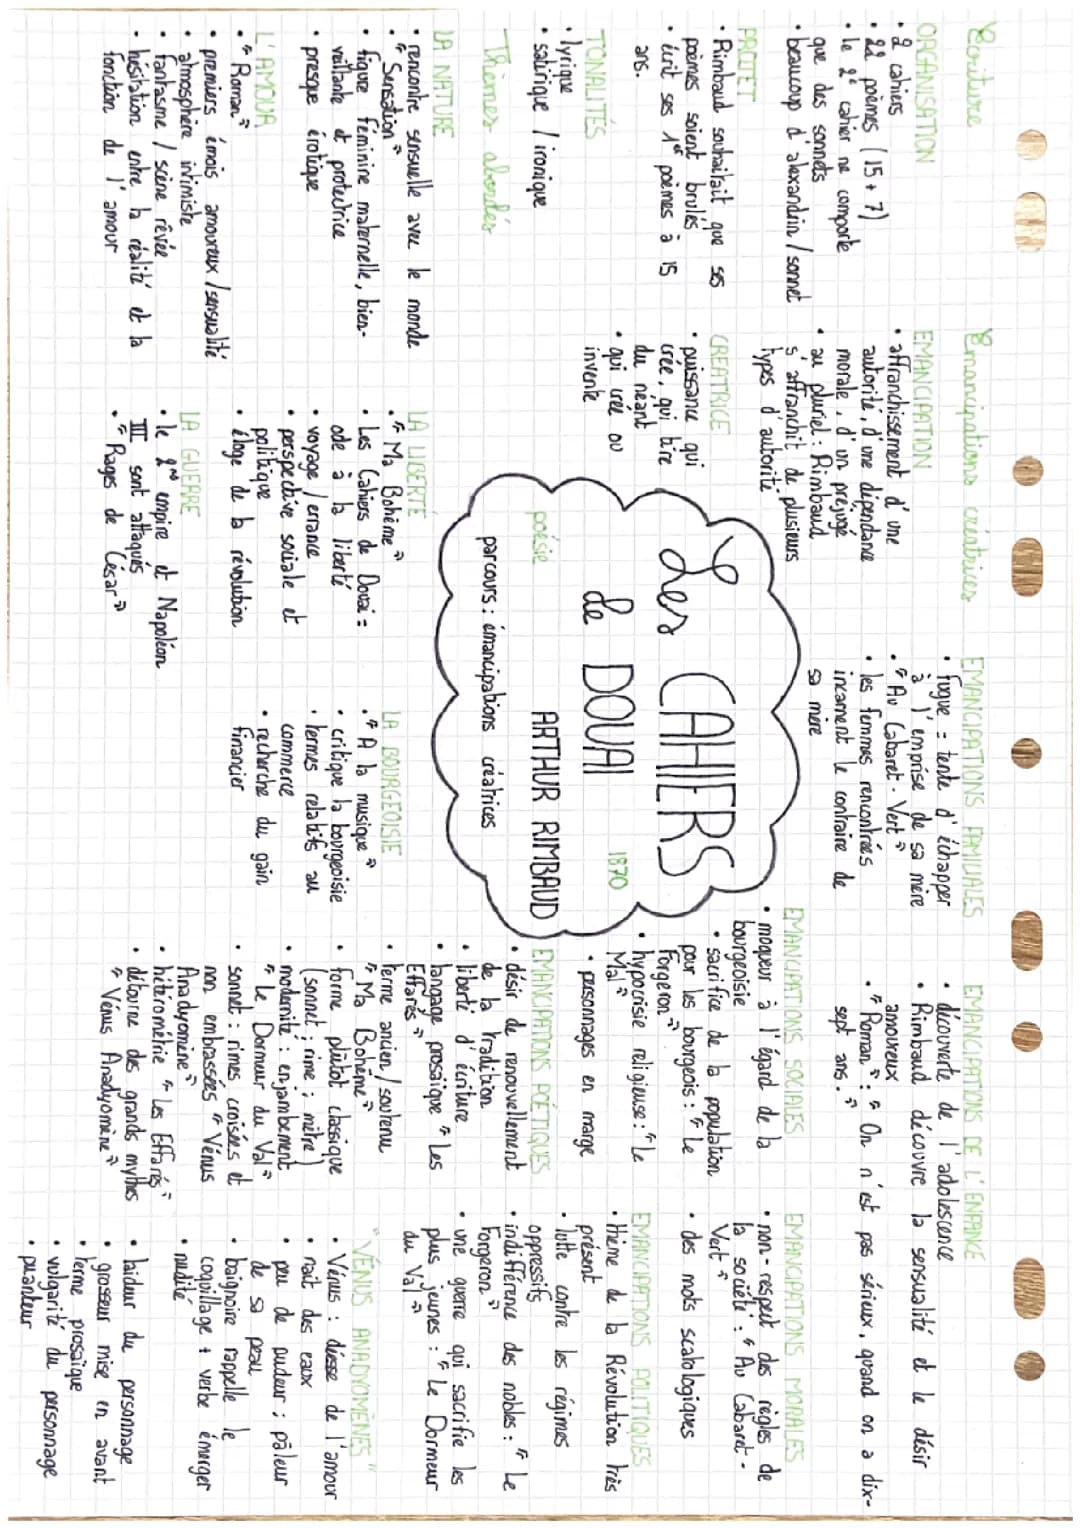 Ecriture
ORGANISATION
• 2 cahiers
• 22 poèmes (15 + 7)
• le 2e cahier ne comporte
que des sonnets
• beaucoup d'alexandrin / sonnet
PROJET
• Rimbaud souhaitait que ses
poèmes soient brulés
• écrit ses 1er poèmes à 15
ans.
TONALITÉS
• lyrique
• satirique / ironique
Emancipations créatrices
EMANCIPATION
• affranchissement d'une
autorité, d'une dépendance
morale, d'un préjugé
• au pluriel : Rimbaud
s'affranchit de plusieurs
types d'autorité
CREATRICE
• puissance qui
crée, qui tire
du néant
• qui crée ou
invente
EMANCIPATIONS FAMILIALES
• fugue = tente d'échapper
à l'emprise de sa mère
• "Au Cabaret-Vert"
• les femmes rencontrées
incarnent le contraire de
sa mère
EMANCIPATIONS DE L'ENFANCE
• découverte de l'adolescence
• Rimbaud découvre la sensualité et le désir
amoureux
• "Roman" : "On n'est pas sérieux, quand on a dix-
sept ans."
Les CAHIERS
de DOUAI
1870
poésie
ARTHUR RIMBAUD
parcours : émancipations créatrices
EMANCIPATIONS SOCIALES
• moqueur à l'égard de la
bourgeoisie
• sacrifice de la population
pour les bourgeois : "Le
Forgeron"
• hypocrisie religieuse : "Le
Mal"
• personnages en marge
EMANCIPATIONS MORALES
• non-respect des règles de
la société : "Au Cabaret-
Vert"
• des mots scatologiques
EMANCIPATIONS POÉTIQUES
• désir de renouvellement
de la tradition
• liberté d'écriture
• langage prosaïque "Les
Effarés"
• terme ancien / soutenu
"Ma Bohème"
• forme plutôt classique
(sonnet ; rime ; mètre)
• modernité : enjambement
"Le Dormeur du Val"
• sonnet : rimes croisées et
non embrassées "Vénus
Anadyomène"
• hétérométrie "Les Effarés"
• détourne des grands mythes
"Vénus Anadyomène"
EMANCIPATIONS POLITIQUES
• thème de la Révolution très
présent
• lutte contre les régimes
oppressifs
• indifférence des nobles : "Le
Forgeron"
• une guerre qui sacrifie les
plus jeunes : "Le Dormeur
du Val"
Thèmes abordés
LA NATURE
• rencontre sensuelle avec le monde
• "Sensation"
• figure féminine maternelle, bien-
veillante et protectrice
• presque érotique
L'AMOUR
• "Roman"
• premiers émois amoureux / sensualité
• atmosphère intimiste
• fantasme / scène rêvée
• hésitation entre la réalité et la
fonction de l'amour
LA LIBERTÉ
• "Ma Bohème"
• Les Cahiers de Douai =
ode à la liberté
• voyage / errance
• perspective sociale et
politique
• éloge de la révolution
LA GUERRE
• le 2nd empire et Napoléon
III sont attaqués
• "Rages de César"
LA BOURGEOISIE
• "A la musique"
• critique la bourgeoisie
• termes relatifs au
commerce
• recherche du gain
financier
"VÉNUS ANADYOMÈNES"
• Vénus : déesse de l'amour
• naît des eaux
• peu de pudeur ; pâleur
de sa peau
• baignoire rappelle le
coquillage + verbe émerger
• nudité
• laideur du personnage
• grosseur mise en avant
• terme prosaïque
• vulgarité du personnage
• puanteur